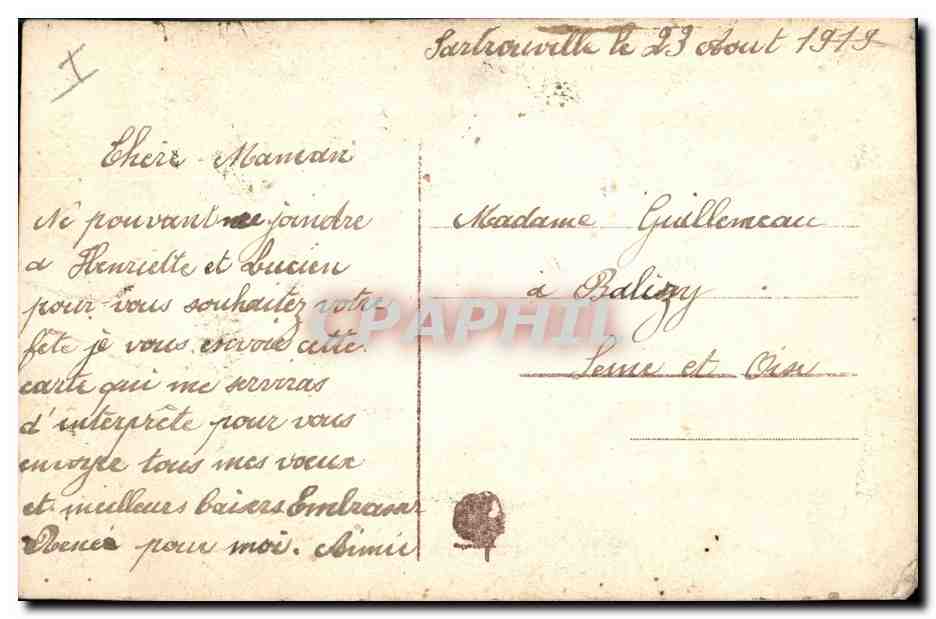 Sartrouville le 23 Aout 1919
Chere Maman
Ne pouvant me joindre
a Henriette et Lucien
pour vous souhaitez votre
fête je vous envoie cette
carte qui me serviras
d'interprête pour vous
envoyee tous mes voeux
et meilleurs baisers Embrasser
Renée pour moi. Aimée
Madame Guillemeau
a Balizy
Seine et Oise
CPAPHIL